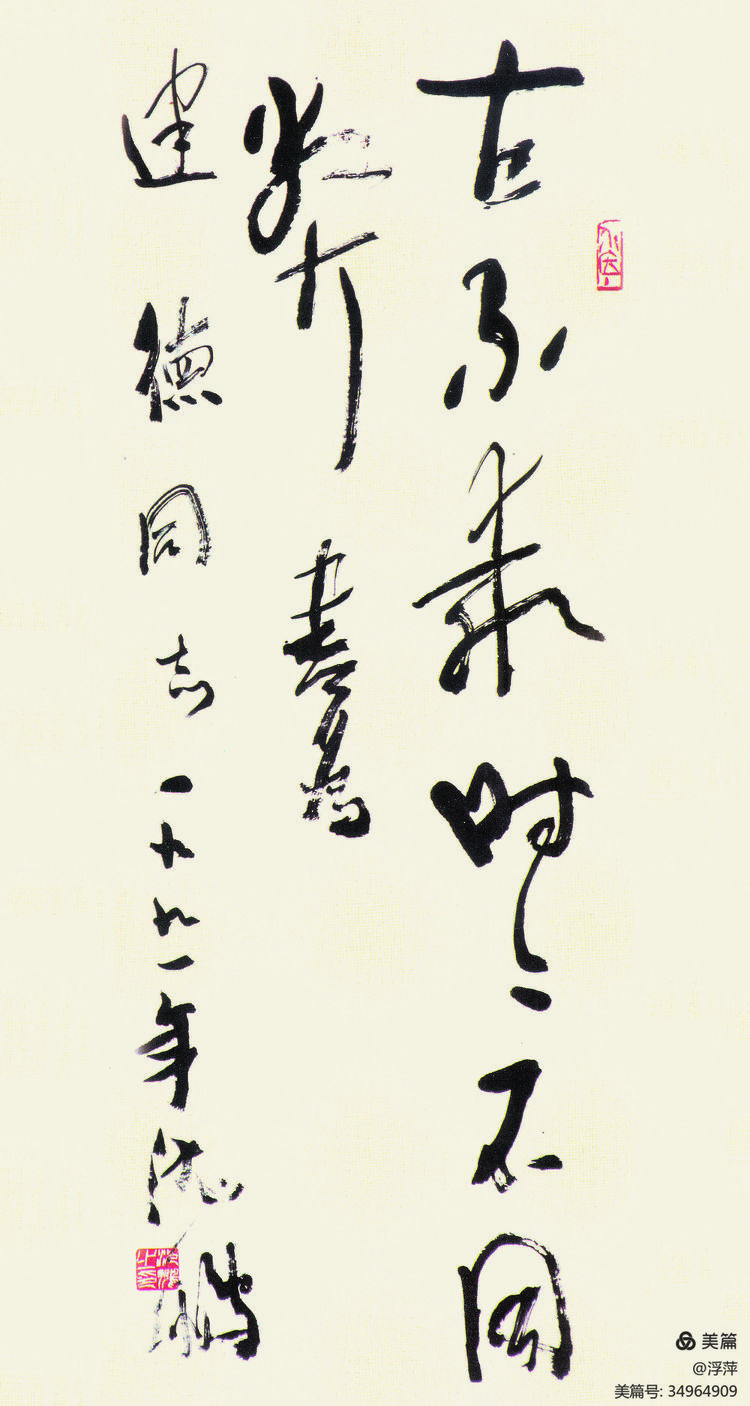 古不乖时今不同
弊 书为
建德同志一九九一年沈鹏
美篇
@浮萍
美篇号: 34964909